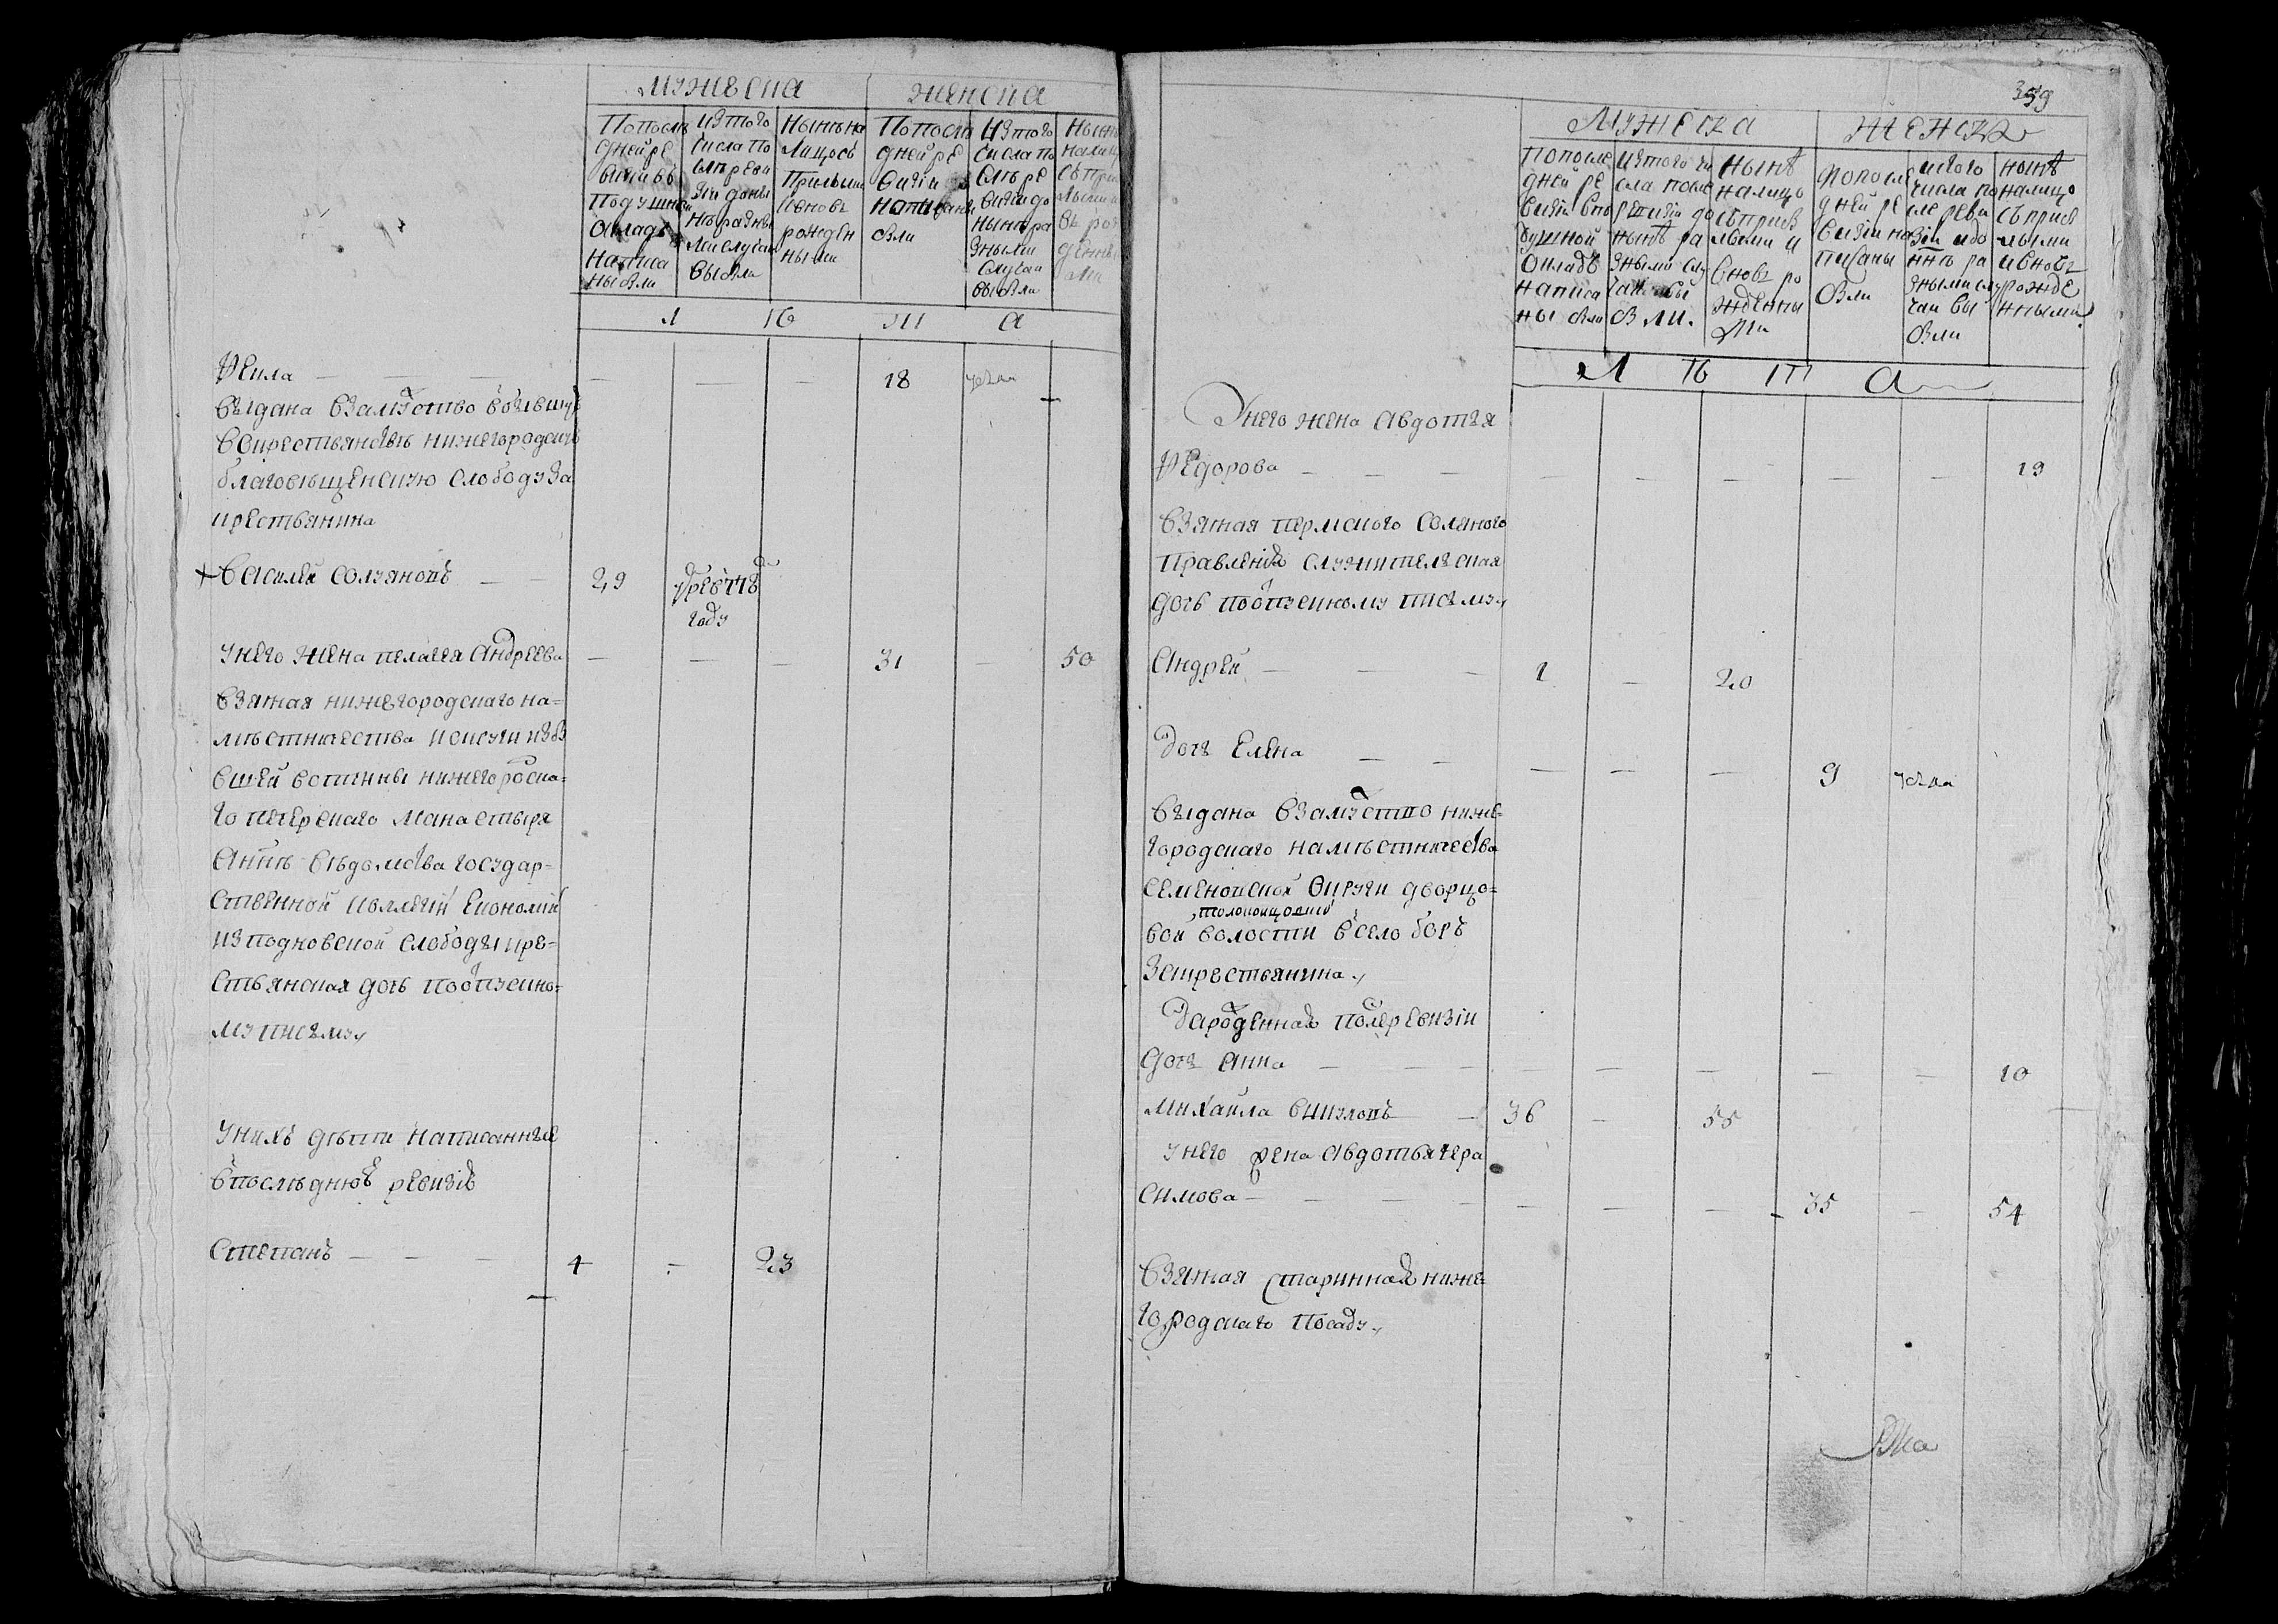 мужеска
женска
Попосле
дней ре
визіи въ
подушной
окладъ
написа
ны были
изтого
числа по
слѣ реви
зіи до ны
нѣ разны
ми случаи
выбыли
Нынѣ на
лицо съ
прибылы
и вновь
рожден
ными
Попосле
дней ре
визіи
написаны
были
изтого
числа по
слѣ ре
визіи до
нынѣ ра
зными
случаи
выбыли
л ѣ т а
Фекла — — — — — — 18
выдана взамуство бывшую
вкрестьянствѣ нижегородскую
благовѣщенскую слободу за
крестьянина
Василей Солуяновъ — — 29
умре въ 778
году
унего жена пелагея Андреева — — — 31 — 50
взятая нижегородскаго на=
мѣстничества
вшей вотчины нижегородска=
го печерскаго манастыря
аннѣ вѣдомства государ=
ственной коллегіи економіи
изподновской слободы кре=
стьянская дочь поотпускно=
му писму
унихъ дѣти написанные
впослѣднюю ревизію
Степанъ — — — 4 — 23
359
Мужеска
Женска
попосле
дней ре
визіи впо
душной
окладъ
написа
ны были
изтого чи
сла после
ревизіи до
нынѣ ра
зными слу
чаи вы
были.
нынѣ
налицо
сприбы
лыми и
вновь ро
жденны
ми
попосле
дней ре
визіи на
писаны
были
истого
числа по
сле реви
зіи идо
ннѣ ра
зными слу
чаи вы
были
нынѣ
налицо
съ прибы
лыми
ивновь
рожде
нными
Л ѣ т а
Унего жена Авдотья
Федорова — — — — — — — — 19
взятая пермского соляного
правленія служительская
дочь поотпускному писму
Андрей — — — 1 — 20
дочь Елена — — — — — 9
выдана взамуство ниже=
городскаго намѣстничества
семеновской округи дворцо=
толоконцовской
вой волости всело боръ
закрестьянина
Зарожденная послѣ ревизіи
дочь Анна — — — — — — — — 10
Михайла Викуловъ — 36 — 55
унего жена Авдотья гера
симова — — — — — — — 35 — 54
взятая старинная ниже=
городскаго посаду